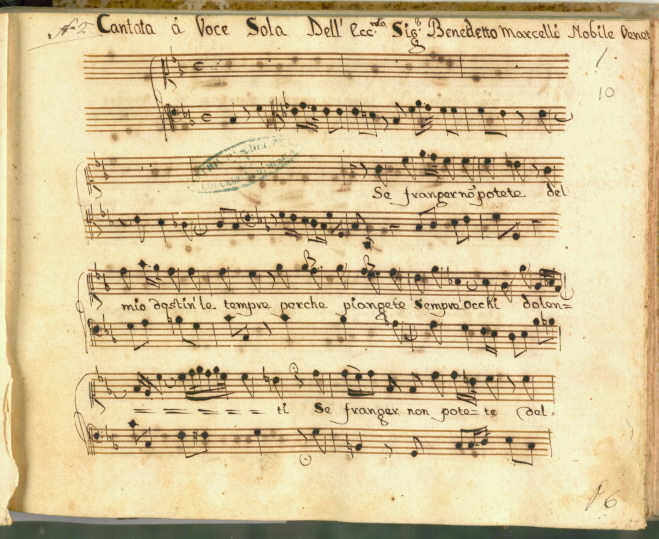 Cantata á Voce Sola Dell' Ecc.mo Sig. Benedetto Marcelli Nobile Venet
10
Se franger nō potete del
mio destin' le tempre perche piangete Sempre occhi dolen=
ti Se franger non pote=te del.